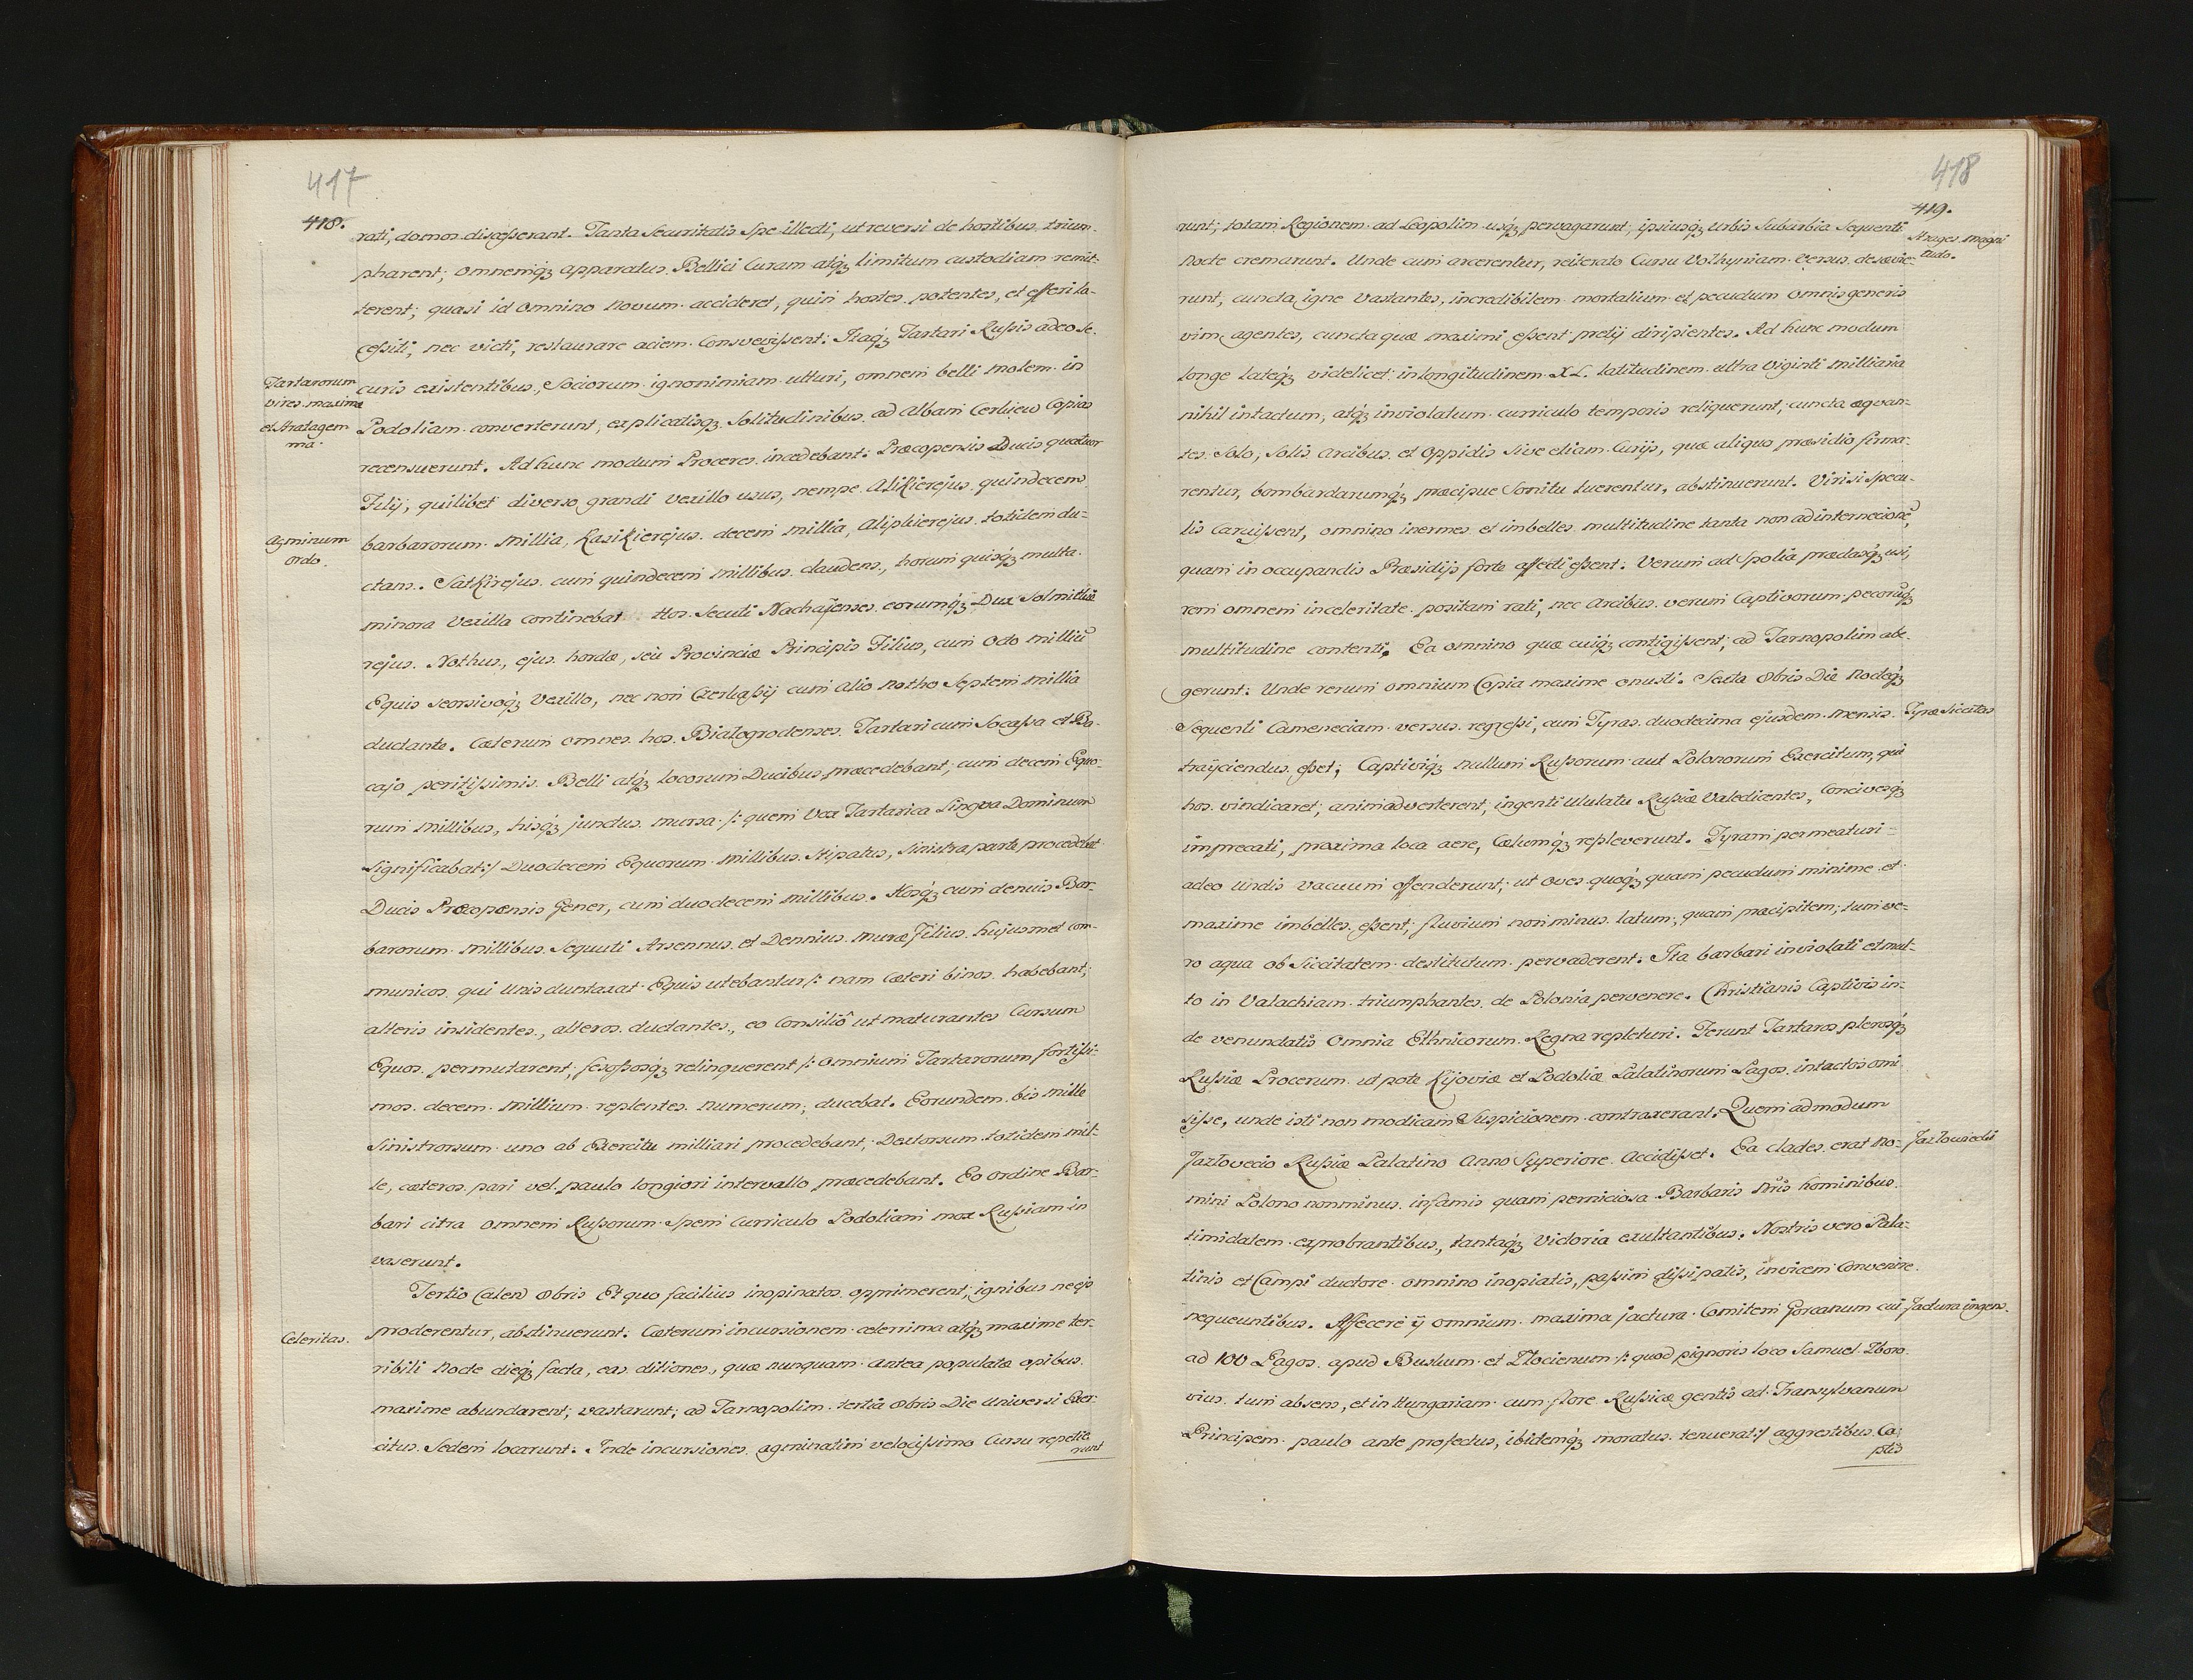 417
418.
rati, domos discesserant. Tanta Securitatis Spe illecti, ut reversi de hostibus trium-
pharent; omnemq́; apparatus Bellici Curam atq́; limitum custodiam remit-
terent; quasi id Omnino Novum accideret, quin hostes potentes, et efferi la-
cessiti, nec victi, restaurare aciem Consvevissent: Itaq́; Tartari Russis adeo Se-
Tartarorum
vires maximæ
et Stratagem
ma.
curis existentibus, Sociorum ignonimiam ulturi, omnem belli molem in
Podoliam converterunt, explicatisq́; Solitudinibus ad Albam Cerkiew Copias
recensuerunt. Ad hunc modum Proceres incedebant: Præcopensis Ducis quatuor
Filij, quilibet diverso grandi vexillo usus, nempe Alikierejus quindecem
Agminum
Ordo.
barbarorum Millia, Kasikierejus decem millia, Aliphierejus totidem du-
ctans. Satkirejus cum quindecem Millibus claudens, horum quisq́; multa
minora Vexilla Continebat. Hos Secuti Nachajenses eorumq́; Dux Solmithie
rejus Nothus, ejus hordæ, seu Provinciæ Principis Filius, cum Octo milliū
Equis seorsivoq́; Vexillo, nec non Czerkassij cum alio notho Septem millia
ductante. Cæterum omnes hos Białogrodenses Tartari cum Socassa et Ba-
cajo peritissimis Belli atq́; locorum Ducibus præcedebant; cum decem Equo-
rum Millibus, hisq́; junctus mursa /: quem Vox Tartarica Lingva Dominum
Significabat:/ Duodecem Equorum Millibus Stipatus, Sinistra parte procedebat
Ducis Præcopensis Gener, cum duodecem Millibus. Hosq́; cum denuis Bar-
barorum Millibus Sequuti Arsennus et Dennius Murzæ Filius hujusmet com-
municos, qui Unis duntaxat Equis utebantur /: nam Cæteri binos habebant;
alteris insidentes, alteros ductantes, eo Consiliô ut maturantes Cursum
Equos permutarent, fessosq́; relinquerent /: Omnium Tartarorum fortissi-
mos decem Millium replentes numerum; ducebat. Eorundem bis mille
Sinistrorsum uno ab Exercitu milliari procedebant; Dextorsum totidem mil-
le, cæteros pari vel paulo longiori intervallo præcedebant. Eo Ordine Bar-
bari citra omnem Russorum Spem Curriculo Podoliam mox Russiam in
vaserunt.
Tertio Calend 8bris Et quo facilius inopinatos opprimerent; ignibus neq́;
Celeritas.
proderentur, abstinuerunt: Cæterum incursionem celerrima atq́; maxime ter-
ribili Nocte dieq́; facta, eas ditiones, quæ nunquam antea populatæ opibus
maxime abundarent; vastarunt; ad Tarnopolim tertia 8bris Die Universi Exer-
citus Sedem locarunt. Inde incursiones agminatim velocissimo Cursu repetie
runt

418
419.
runt; totam Regionem ad Leopolim usq́; pervagarunt; ipsiusq́; Urbis Suburbia Sequenti
Strages magni
tudo.
Nocte cremarunt. Unde cum arcerentur, reiterato Cursu Volhyniam versus desævie-
runt, cuncta igne Vastantes, incredibilem mortalium et pecudum Omnis generis
vim agentes, cuncta quæ maximi essent pretij diripientes. Ad hunc modum
longe lateq́; videlicet in longitudinem XL. latitudinem ultra Viginti milliaria
nihil intactum, atq́; inviolatum curriculo temporis reliquerunt, cuncta æquan-
tes Solo; Solis Arcibus et Oppidis Sive etiam Curijs, quæ aliquo præsidio firma-
rentur, bombardarumq́; præcipue Sonitu tuerentur, abstinuerunt. Viri si specu-
lis Caruissent, omnino inermes et imbelles multitudine tanta non ad internecionē,
quam in occupandis Præsidijs forte affecti essent: Verum ad Spolia prædasq́; usi,
rem omnem in celeritate positam rati, nec Arcibus verum Captivorum pecorūq́;
multitudine contenti. Ea omnino quæ cuiq́; contigissent; ad Tarnopolim abe-
gerunt: Unde rerum omnium Copia maxime onusti. Sexta 8bris Die Nocteq́;
Sequenti Cameneciam versus regressi, cum Tyras duodecima ejusdem mensis
Tyræ Siccitas
traijciendus esset; Captiviq́; nullum Russorum aut Polonorum Exercitum, qui
hos vindicaret; animadverterent, ingenti Ululatu Russiæ Valedicentes, Concivesq́;
imprecati, proxima loca aere, Cælumq́; repleverunt. Tyram permeaturi
adeo Undis vacuum offenderunt; ut Oves quoq́; quam pecudum minime et
maxime imbelles essent; fluvium non minus latum, quam præcipitem; tum ve-
ro aqua ob Siccitatem destitutum pervaderent: Ita barbari inviolati et mul-
to in Valachiam triumphantes de Polonia pervenere. Christianis Captivis in-
de venundatis Omnia Ethnicorum Regna repleturi. Ferunt Tartaros plerosq́;
Russiæ Procerum ut pote Kijoviæ et Podoliæ Palatinorum Pagos intactos omi
sisse, unde isti non modicam Suspicionem contraxerant. Quem admodum
Jazłovecio Russiæ Palatino Anno Superiore Accidisset. Ea clades erat No-
Jazłowiecki
mini Polono nonminus infamis quam perniciosa Barbaris Nr̃is hominibus
timidatem exprobrantibus, tantaq́; Victoria exultantibus. Nostris vero Pala-
tinis et Campi ductore omnino inopiatis, passim dissipatis, invicem Convenire
nequeuntibus. Affecere ij omnium maxima jactura Comitem Gorcanum cui
Jactura ingens.
ad 100 Pagos apud Buskum et Złocienum /: quod pignoris loco Samuel Zboro
vius tum absens, et in Hungariam cum flore Russicæ gentis ad Transylvanum
Principem paulo ante profectus, ibidemq́; moratus tenuerat:/ aggrestibus Ca-
ptis